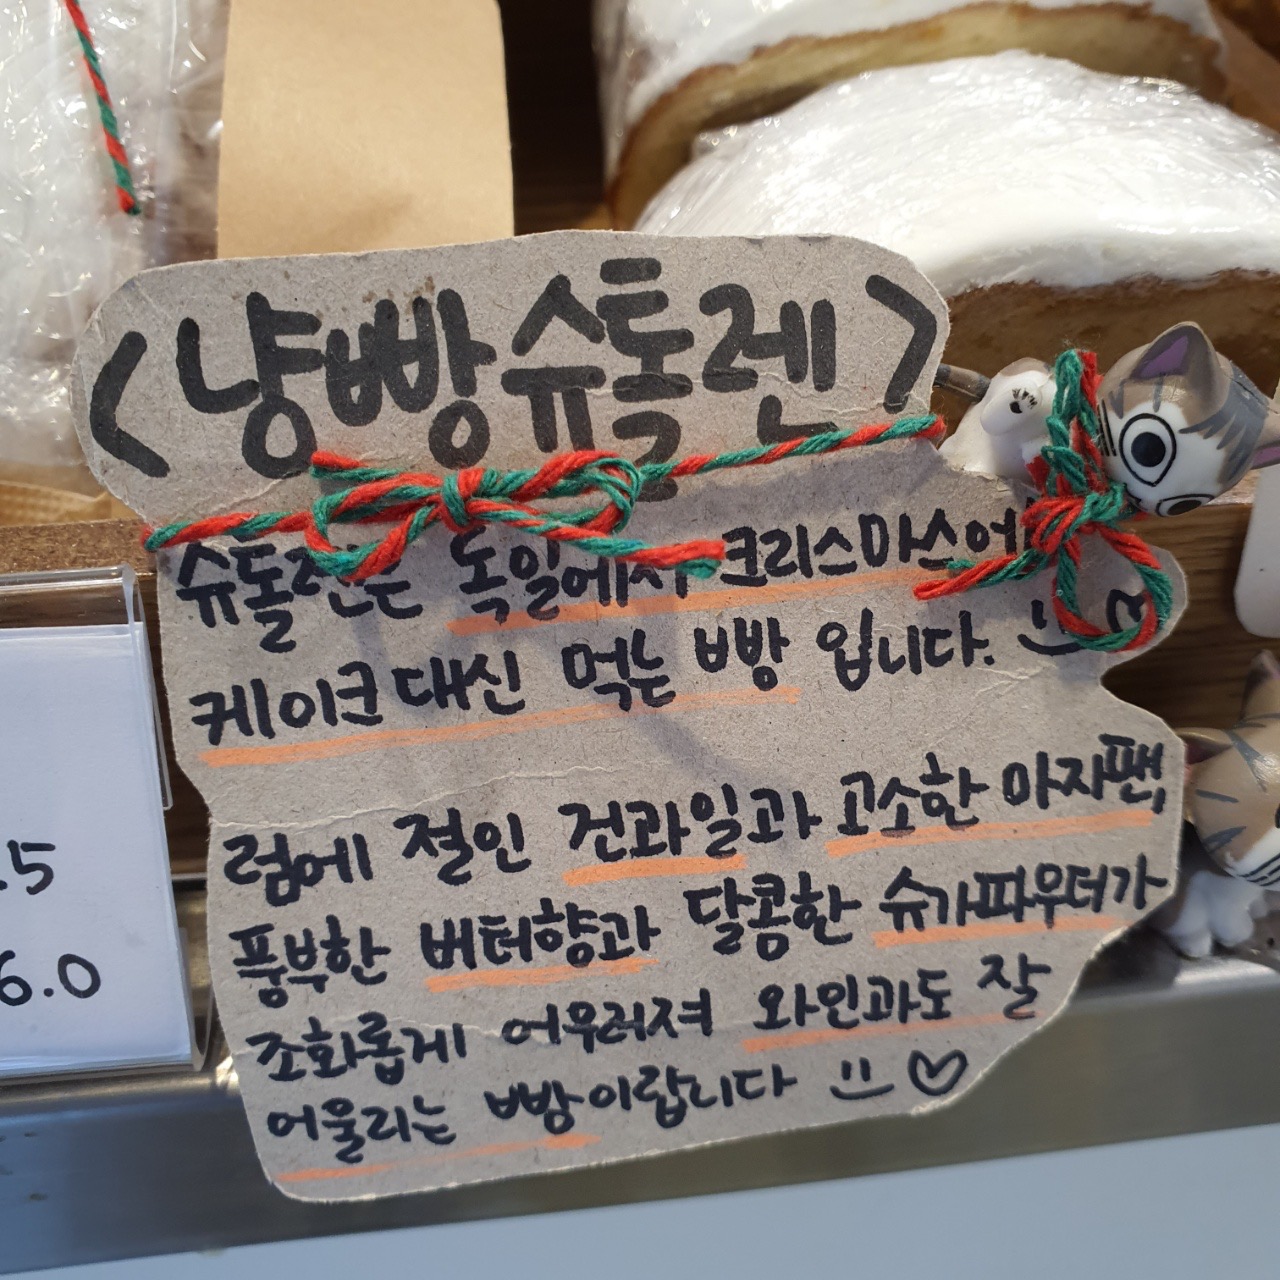 <냥빵슈톨렌>
슈톨렌은 독일에서 크리스마스에
케이크대신 먹는 빵 입니다.
럼에 절인 건과일과 고소한 마자팬,
풍부한 버터향과 달콤한 슈가파우더가
조화롭게 어우러져 와인과도 잘
어울리는 빵이랍니다 ♡
.5
6.0